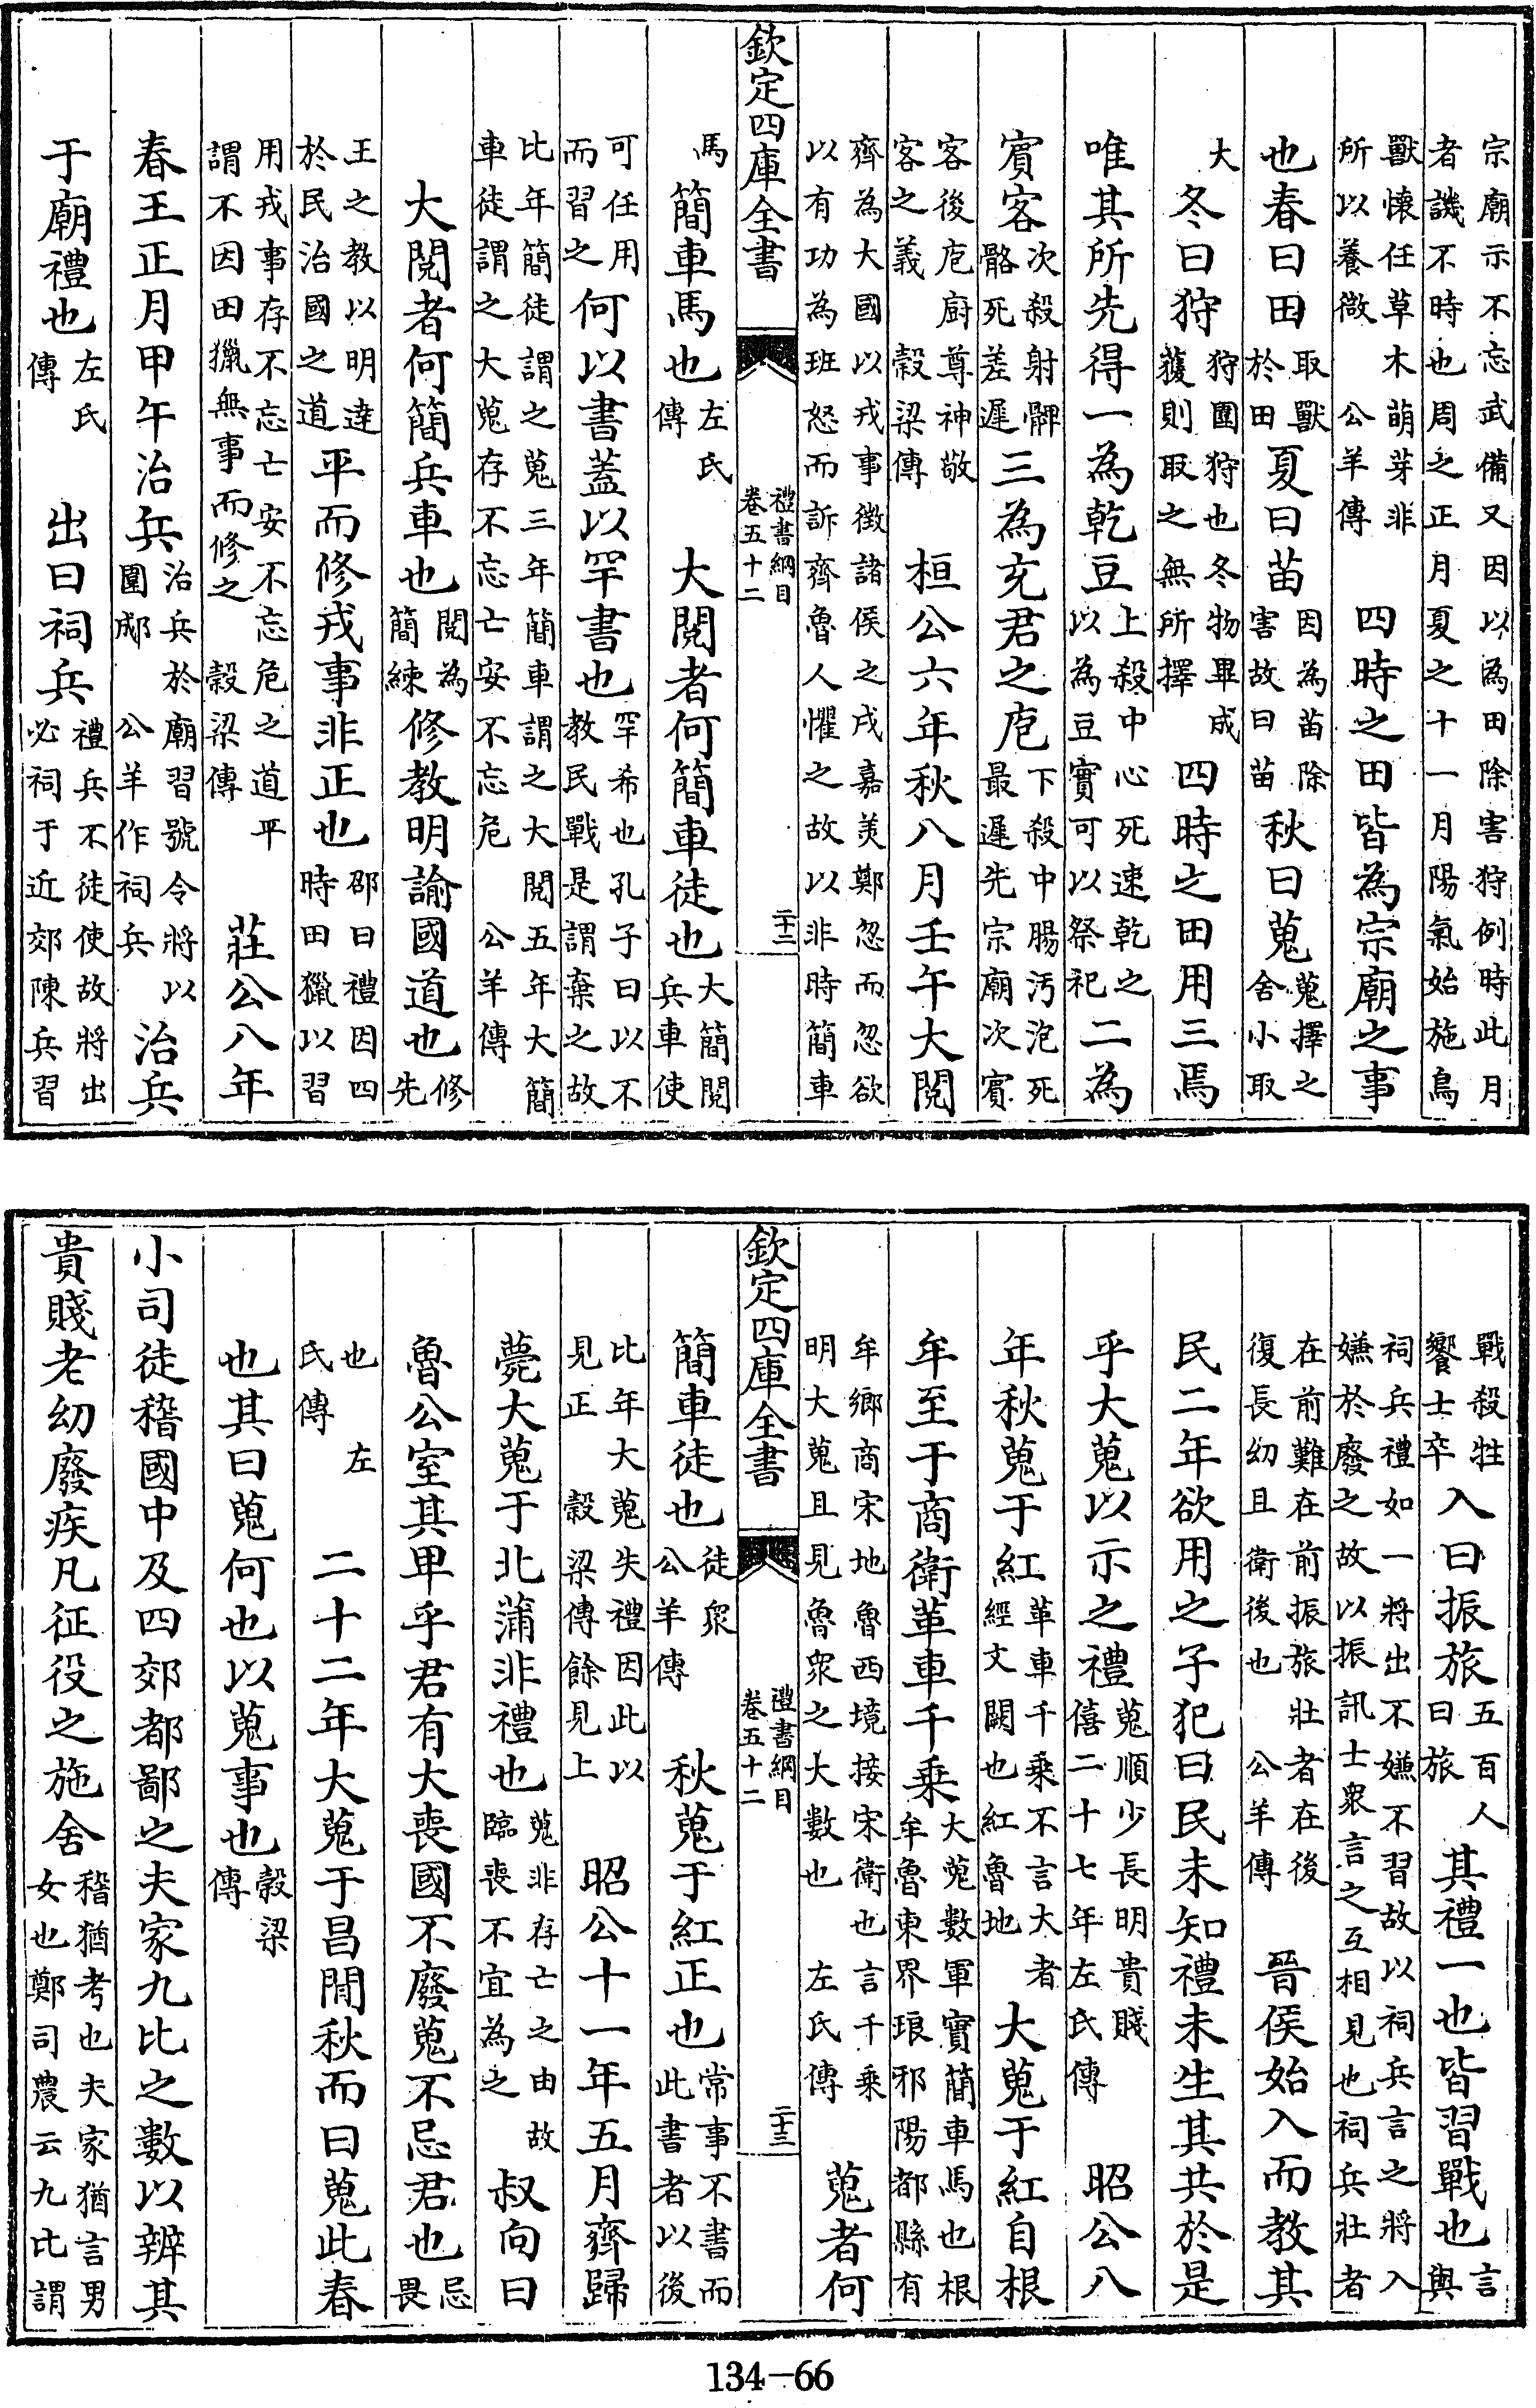 宗廟示不忘武備又因以為田除害狩例時此月
者譏不時也周之正月夏之十一月陽氣始施鳥
獸懷任草木萌芽非
所以養微　公羊傳　四時之田皆為宗廟之事
也春曰田取獸於田夏曰苗因為苗除害故曰苗秋曰蒐蒐擇之舍小取
大冬曰狩狩圍狩也冬物畢成獲則取之無所擇四時之田用三焉
唯其所先得一為乾豆上殺中心死速乾之以為豆實可以祭祀二為
賓客次殺射髀骼死差遲三為充君之庖下殺中腸汚泡死最遲先宗廟次賓
客後庖廚尊神敬
客之義　穀梁傳　桓公六年秋八月壬午大閱
齊為大國以戎事徵諸侯之戍嘉美鄭忽而忽欲
以有功為班怒而訴齊魯人懼之故以非時簡車
欽定四庫全書　禮書綱目卷五十二　二十二
馬簡車馬也左氏傳　大閱者何簡車徒也大簡閱兵車使
可任用而習之何以書蓋以罕書也罕希也孔子曰以不教民戰是謂棄之故
比年簡徒謂之蒐三年簡車謂之大閱五年大簡
車徒謂之大蒐存不忘亡安不忘危　公羊傳
大閱者何簡兵車也閱為簡練修教明諭國道也修先
王之教以明達於民治國之道平而修戎事非正也邵曰禮因四時田獵以習
用戎事存不忘亡安不忘危之道平
謂不因田獵無事而修之　穀梁傳　莊公八年
春王正月甲午治兵治兵於廟習號令將以圍郕　公羊作祠兵　治兵
于廟禮也左氏傳　出曰祠兵禮兵不徒使故將出必祠于近郊陳兵習
戰殺牲饗士卒入曰振旅五百人曰旅其禮一也皆習戰也言與
祠兵禮如一將出不嫌不習故以祠兵言之將入
嫌於廢之故以振訊士衆言之互相見也祠兵壯者
在前難在前振旅壯者在後
復長幼且衛後也　公羊傳　晉侯始入而教其
民二年欲用之子犯曰民未知禮未生其共於是
乎大蒐以示之禮蒐順少長明貴賤僖二十七年左氏傳　昭公八
年秋蒐于紅革車千乘不言大者經文闕也紅魯地　大蒐于紅自根
牟至于商衛革車千乘大蒐數軍實簡車馬也根牟魯東界琅邪陽都縣有
牟鄉商宋地魯西境接宋衛也言千乘
明大蒐且見魯衆之大數也　左氏傳　蒐者何
欽定四庫全書　禮書綱目卷五十二　二十三
簡車徒也徒衆　公羊傳　秋蒐于紅正也常事不書而此書者以後
比年大蒐失禮因此以
見正　穀梁傳餘見上　昭公十一年五月齊歸
薨大蒐于北蒲非禮也蒐非存亡之由故臨喪不宜為之叔向曰
魯公室其卑乎君有大喪國不廢蒐不忌君也忌畏
也　左氏傳　二十二年大蒐于昌閒秋而曰蒐此春
也其曰蒐何也以蒐事也穀梁傳
小司徒稽國中及四郊都鄙之夫家九比之數以辨其
貴賤老幼廢疾凡征役之施舍稽猶考也夫家猶言男女也鄭司農云九比謂
134-66